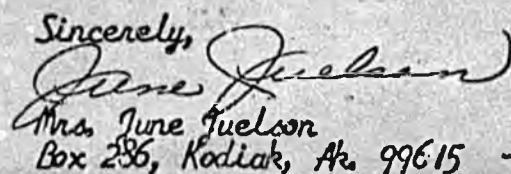 Sincerely,
June Juelson
Mrs. June Juelson
Box 286, Kodiak, Ak. 99615